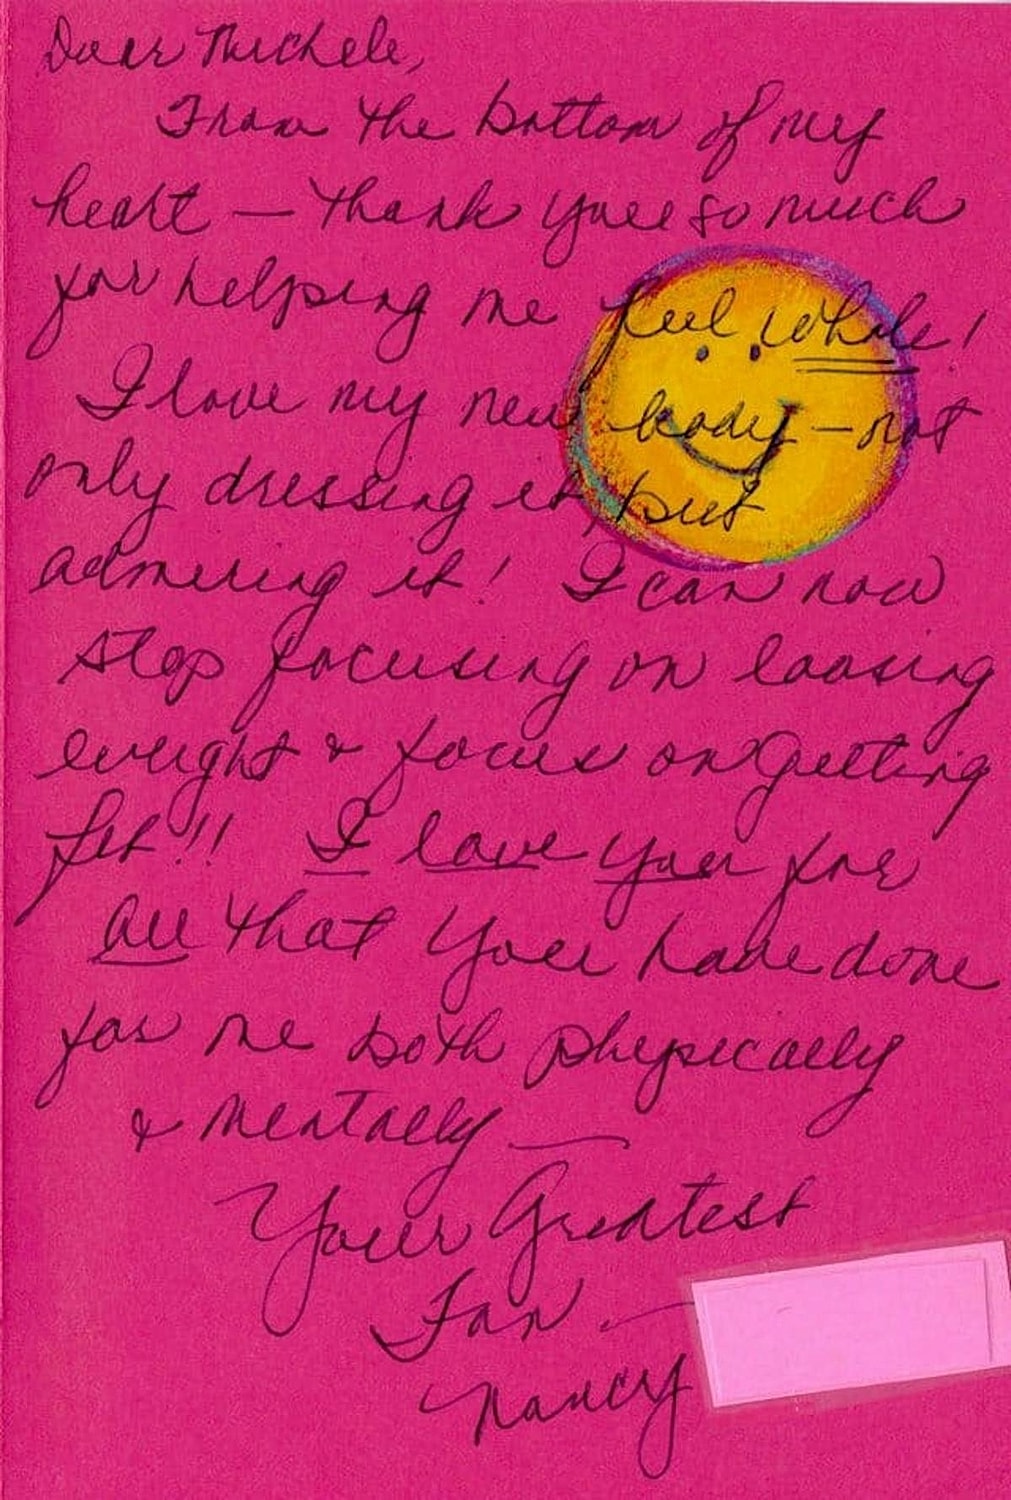 Dear Michele,
From the bottom of my
heart — thank you so much
for helping me feel whole!
I love my new body — not
only dressing it, but
admiring it! I can now
stop focusing on loosing
weight & focus on getting
fit!! I love you for
all that you have done
for me both physically
& mentally —
Your Greatest
Fan —
Nancy